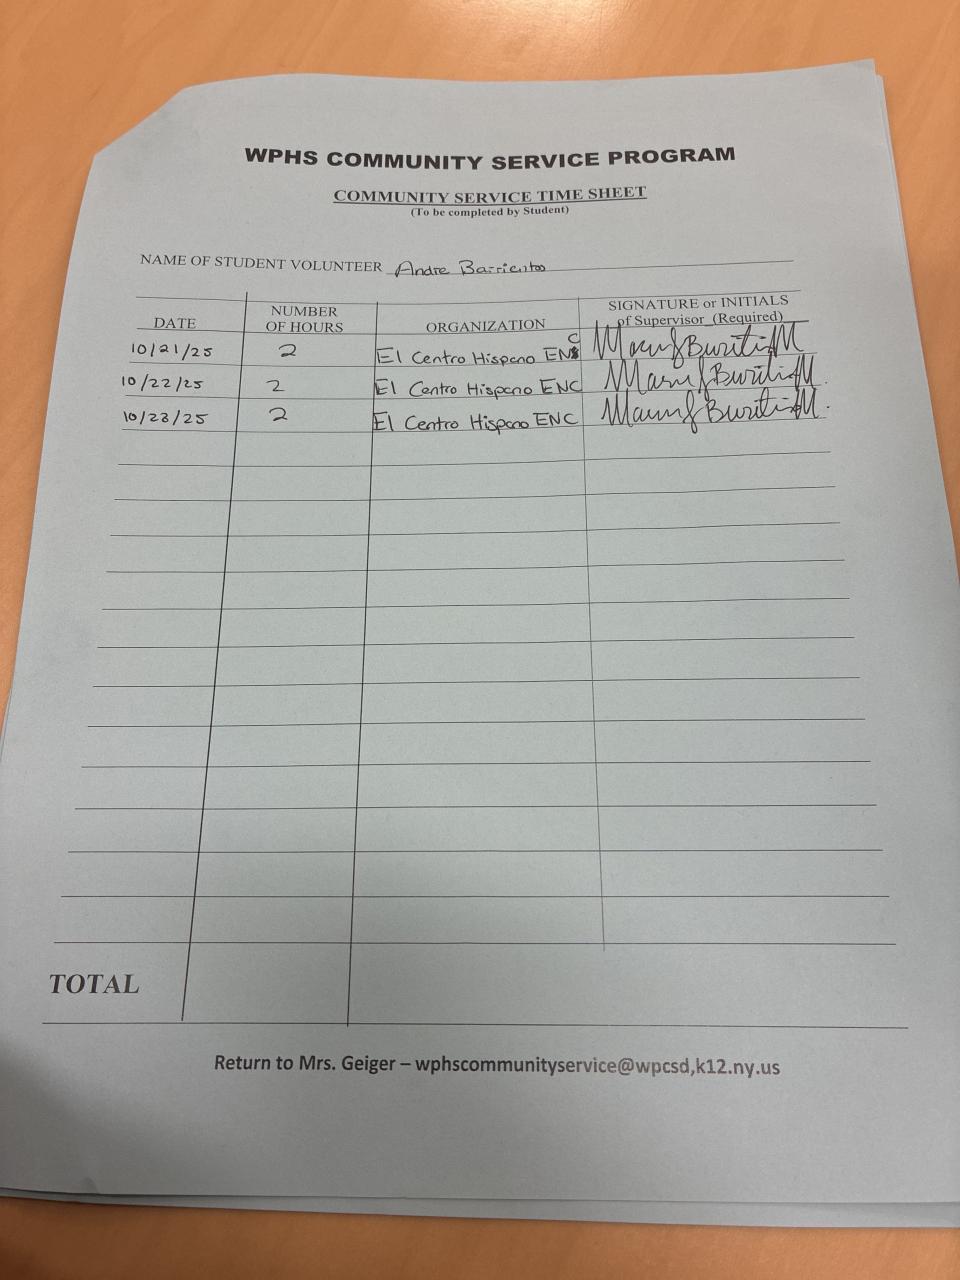 WPHS COMMUNITY SERVICE PROGRAM
COMMUNITY SERVICE TIME SHEET
(To be completed by Student)
NAME OF STUDENT VOLUNTEER Andre Barrientos
DATE NUMBER OF HOURS ORGANIZATION SIGNATURE or INITIALS of Supervisor (Required)
10/21/25 2 El Centro Hispano ENC
10/22/25 2 El Centro Hispano ENC
10/23/25 2 El Centro Hispano ENC
TOTAL
Return to Mrs. Geiger – wphscommunityservice@wpcsd,k12.ny.us